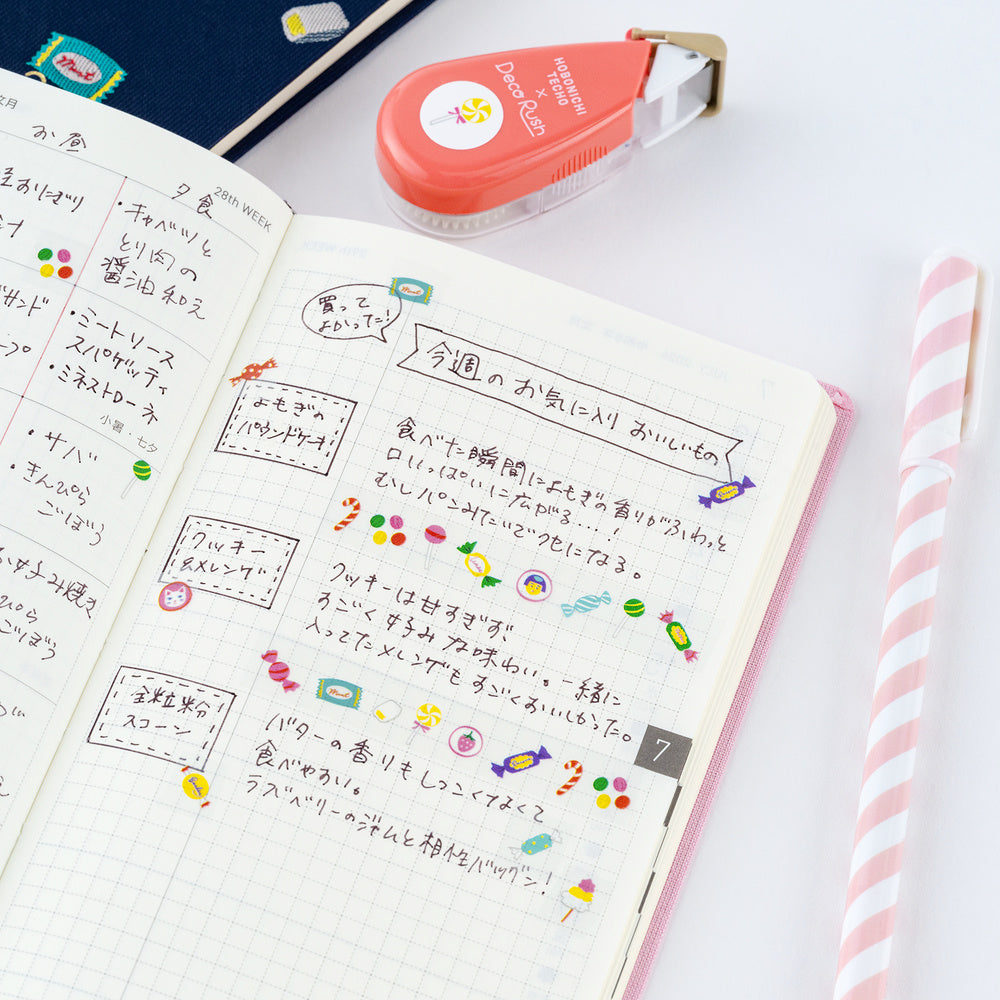 Mint
HOBONICHI
TECHO
×
Deco Rush
文月
お昼
夕食
28th WEEK
おにぎり
・キャベツと
とり肉の
醤油和え
サンド
・ミートソース
スパゲッティ
・ミネストローネ
小暑・七夕
・サバ
・きんぴら
ごぼう
お好み焼き
ぴら
ごぼう
買って
よかった!
Mint
今週のお気に入りおいしいもの
よもぎの
パウンドケーキ
食べた瞬間によもぎの香りがふわっと
口いっぱいに広がる...!
むしパンみたいでクセになる。
クッキー
&メレンゲ
クッキーは甘すぎず、
すごく好みな味わい。一緒に
入ってたメレンゲもすごくおいしかった。
Mint
7
全粒粉
スコーン
バターの香りもしつこくなくて
食べやすい。
ラズベリーのジャムと相性バツグン!